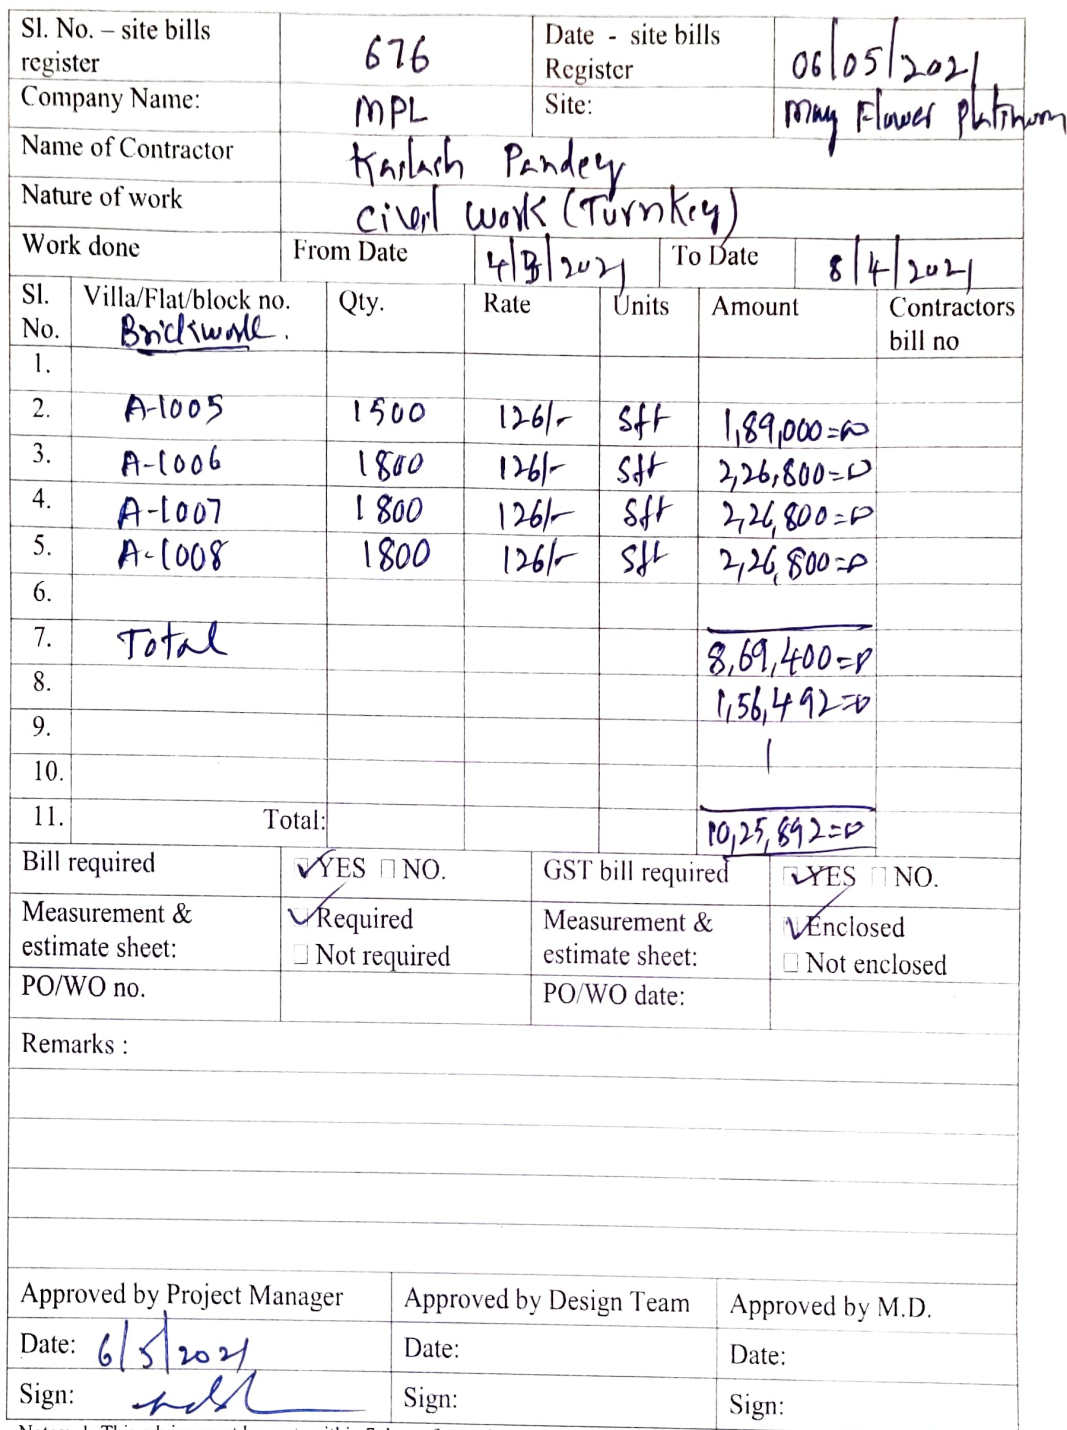 Sl. No. – site bills register 676 Date - site bills Register 06/05/2021
Company Name: MPL Site: May Flower Platinum
Name of Contractor Kailash Pandey
Nature of work Civil work (Turnkey)
Work done From Date 4/3/2021 To Date 8/4/2021
Sl. No. Villa/Flat/block no. Brickwork. Qty. Rate Units Amount Contractors bill no
1.
2. A-1005 1500 126/- Sft 1,89,000=00
3. A-1006 1800 126/- Sft 2,26,800=0
4. A-1007 1800 126/- Sft 2,26,800=0
5. A-1008 1800 126/- Sft 2,26,800=0
6.
7. Total 8,69,400=0
8. 1,56,492=0
9.
10.
11. Total: 10,25,892=0
Bill required YES NO. GST bill required YES NO.
Measurement & estimate sheet: Required Not required Measurement & estimate sheet: Enclosed Not enclosed
PO/WO no. PO/WO date:
Remarks :
Approved by Project Manager Approved by Design Team Approved by M.D.
Date: 6/5/2021 Date: Date:
Sign: Sign: Sign: